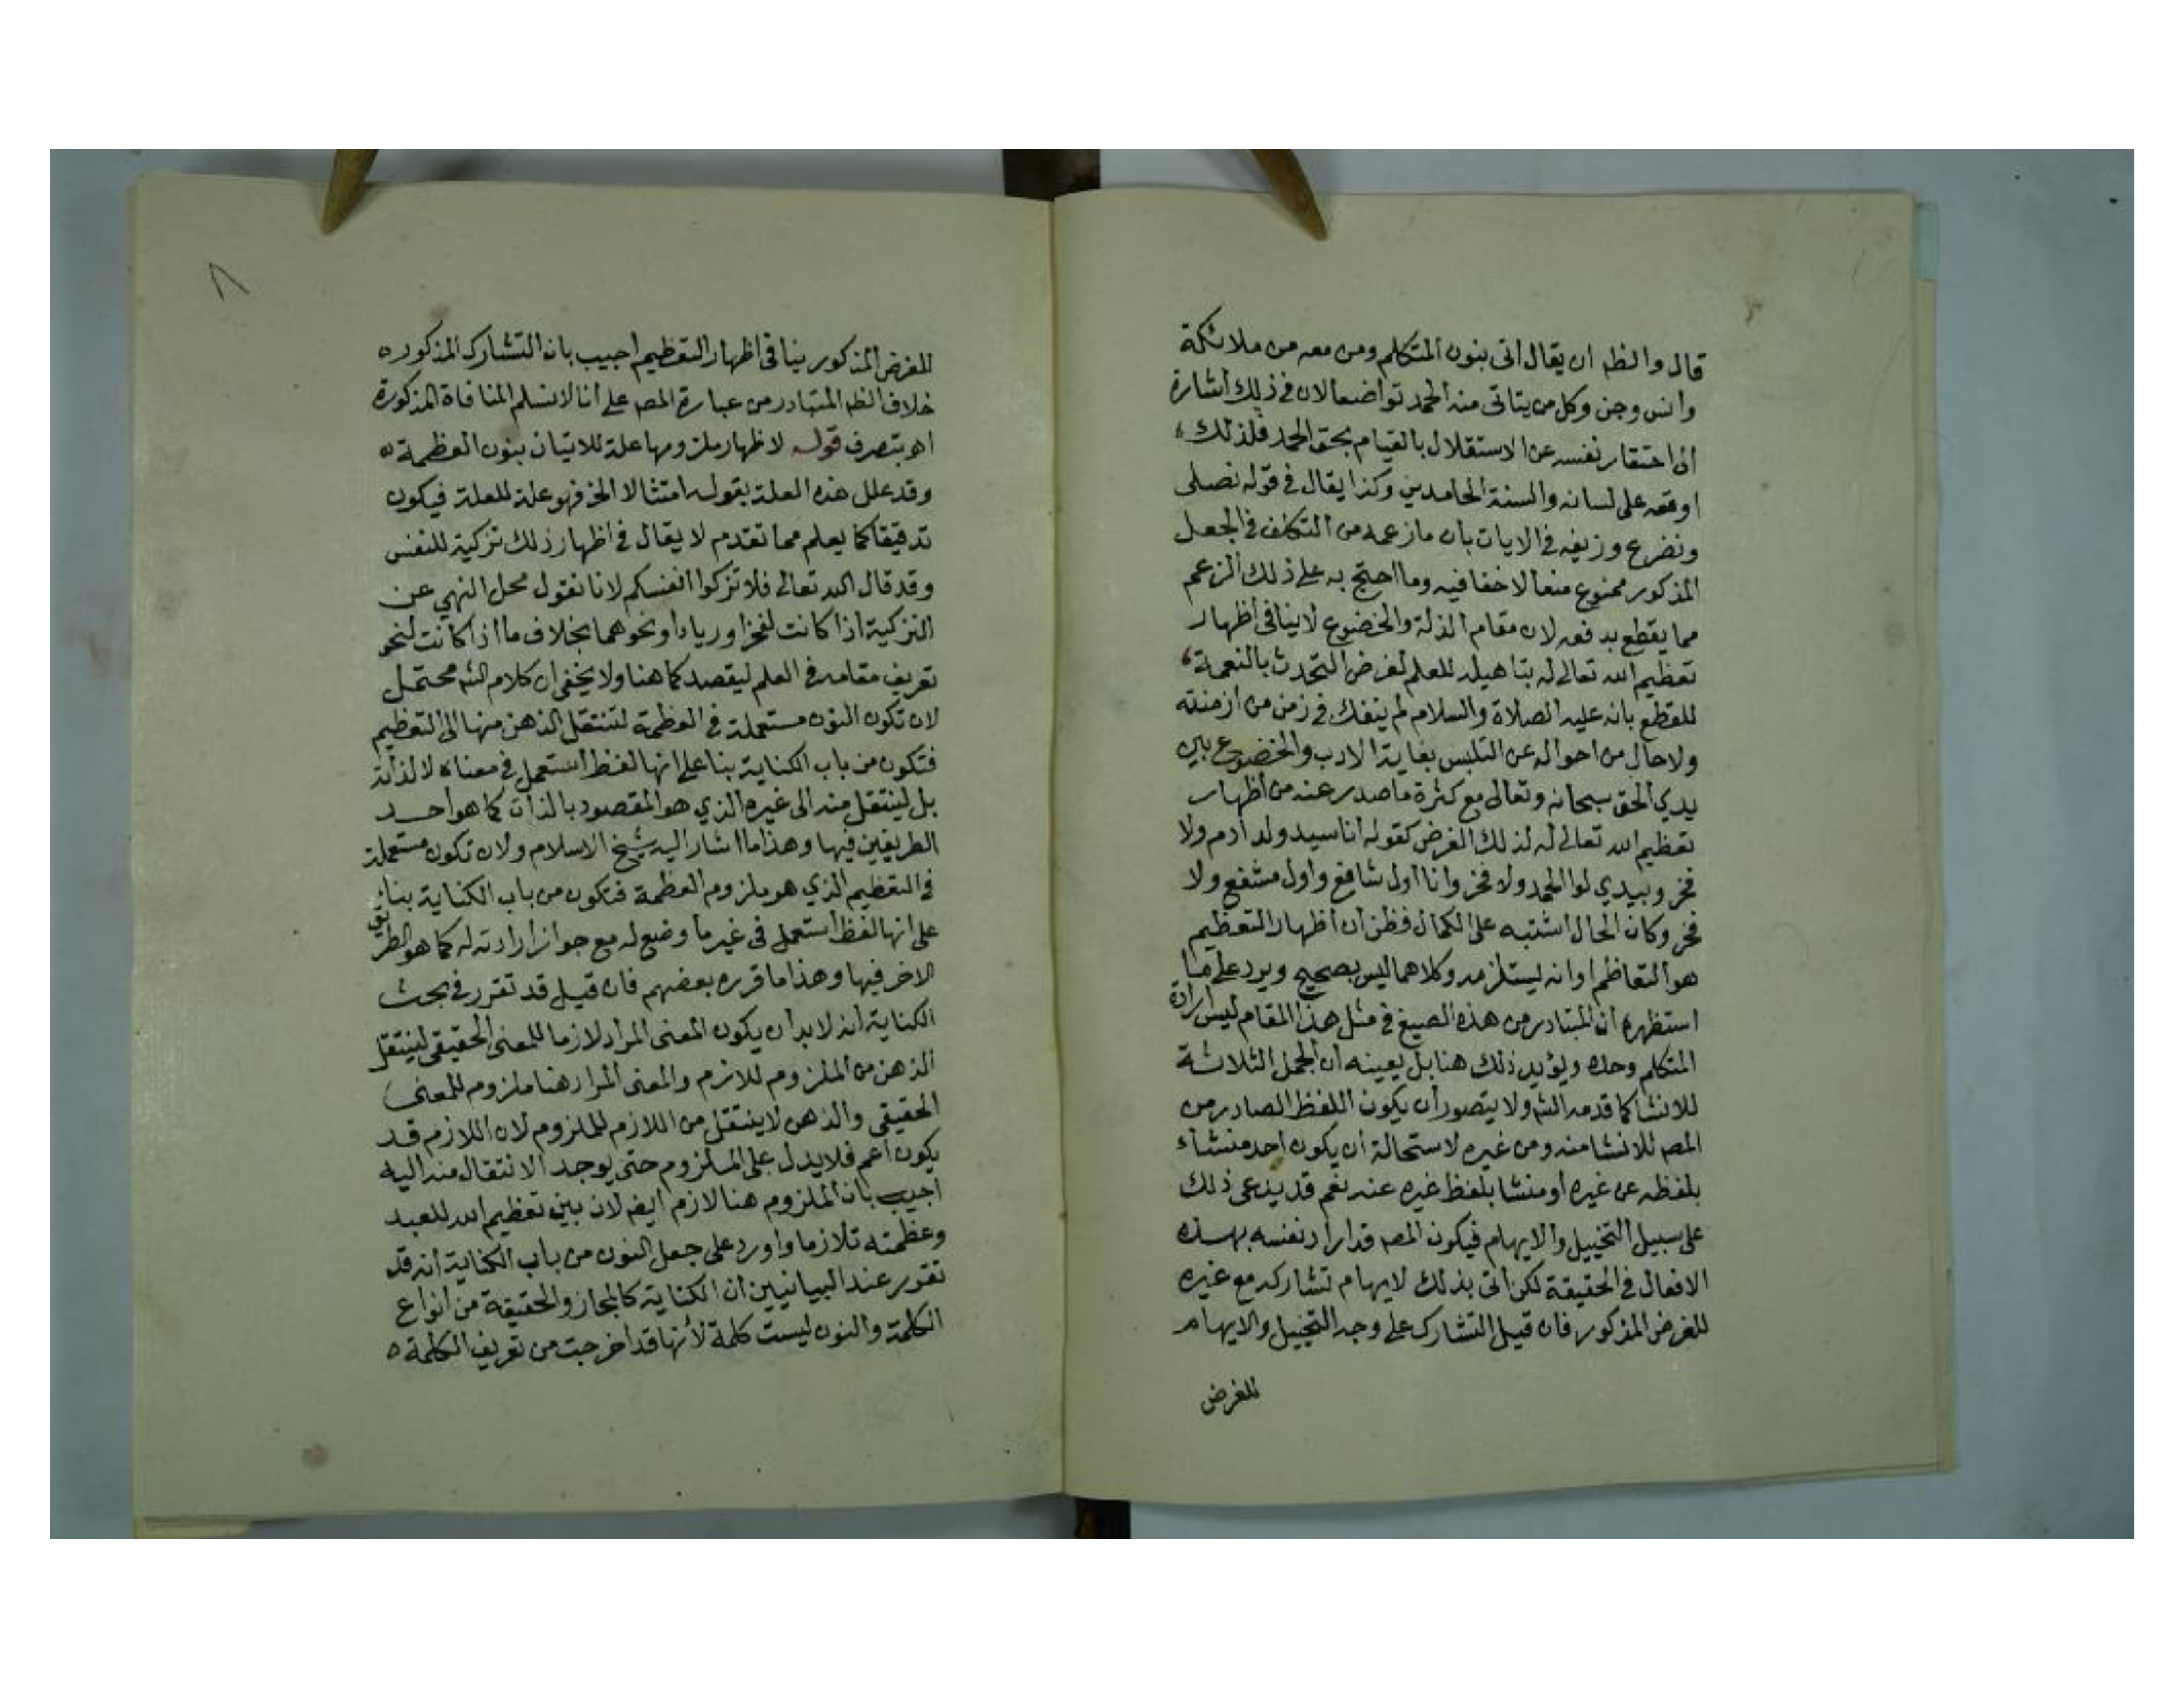 قال والظم ان يقال اتى بنون المتكلم ومن معه من ملائكة
وانس وجن وكل من يتاتى منه الحمد تواضعا لان في ذلك اشارة
الى احتقار نفسه عن الاستقلال بالقيام بحق الحمد فلذلك
اوقعه على لسانه والسنة الحامدين وكذا يقال في قوله نصلى
ونضرع وزيفه في الايات بان ما زعمه من التكلف في الجعل
المذكور ممنوع منعا لا خفا فيه وما احتج به على ذلك الزعم
مما يقطع بدفعه لان مقام الذلة والخضوع لا ينافى اظهار
تعظيم الله تعالى له بتاهيله للعلم لغرض التحدث بالنعمة
للقطع بانه عليه الصلاة والسلام لم ينفك في زمن من ازمنته
ولا حال من احواله عن التلبس بغاية الادب والخضوع بين
يدي الحق سبحانه وتعالى مع كثرة ما صدر عنه من اظهار
تعظيم الله تعالى له لذلك الغرض كقوله انا سيد ولد ادم ولا
فخر وبيدي لوا الحمد ولا فخر وانا اول شافع واول مشفع ولا
فخر وكان الحال اشتبه على الكمال فظن ان اظهار التعظيم
هو التعاظم او انه يستلزمه وكلاهما ليس بصحيح ويرد على ما
استظهره ان المتبادر من هذه الصيغ في مثل هذا المقام ليس ارادة
المتكلم وحده ويؤيد ذلك هنا بل يعينه ان الجمل الثلاثة
للانشا كما قدمه الشم ولا يتصور ان يكون اللفظ الصادر من
المصم للانشا منه ومن غيره لاستحالة ان يكون احد منشاء
بلفظه عن غيره او منشا بلفظ غيره عنه نعم قد يدعى ذلك
على سبيل التخييل والايهام فيكون المصم قد اراد نفسه بهذه
الافعال في الحقيقة لكن اتى بذلك لايهام تشاركه مع غيره
للغرض المذكور فان قيل التشارك على وجه التخييل والايهام
للغرض
٨
للغرض المذكور ينافى اظهار التعظيم اجيب بان التشارك المذكور ه
خلاف الظم المتبادر من عبارة المصم على انا لا نسلم المنافاة المذكورة
اهـ بتصرف قوله لاظهار ملزومها علة للاتيان بنون العظمة ه
وقد علل هذه العلة بقوله امتثالا الخ فهو علة للعلة فيكون
تدقيقا كما يعلم مما تقدم لا يقال في اظهار ذلك تزكية للنفس
وقد قال الله تعالى فلا تزكوا انفسكم لانا نقول محل النهي عن
التزكية اذا كانت لفخر او رياء او نحوهما بخلاف ما اذا كانت لنحو
تعريف مقامه في العلم ليقصد كما هنا ولا يخفى ان كلام الشم محتمل
لان تكون النون مستعملة في العظمة لتنتقل الذهن منها الى التعظيم
فتكون من باب الكناية بنا على انها لفظ استعمل في معناه لا لذاته
بل لينتقل منه الى غيره الذي هو المقصود بالذات كما هو احد
الطريقين فيها وهذا ما اشار اليه شيخ الاسلام ولان تكون مستعملة
في التعظيم الذي هو ملزوم العظمة فتكون من باب الكناية بناء
على انها لفظ استعمل في غير ما وضع له مع جواز ارادته له كما هو الطريق
الاخر فيها وهذا ما قرره بعضهم فان قيل قد تقرر في بحث
الكناية انه لا بد ان يكون المعنى المراد لازما للمعنى الحقيقى لينتقل
الذهن من الملزوم للازم والمعنى المراد هنا ملزوم للمعنى
الحقيقى والذهن لا ينتقل من اللازم للملزوم لان اللازم قد
يكون اعم فلا يدل على الملزوم حتى يوجد الانتقال منه اليه
اجيب بان الملزوم هنا لازم ايضم لان بين تعظيم الله للعبد
وعظمته تلازما واورد على جعل النون من باب الكناية انه قد
تقرر عند البيانيين ان الكناية كالمجاز والحقيقة من انواع
الكلمة والنون ليست كلمة لأنها قد اخرجت من تعريف الكلمة ه